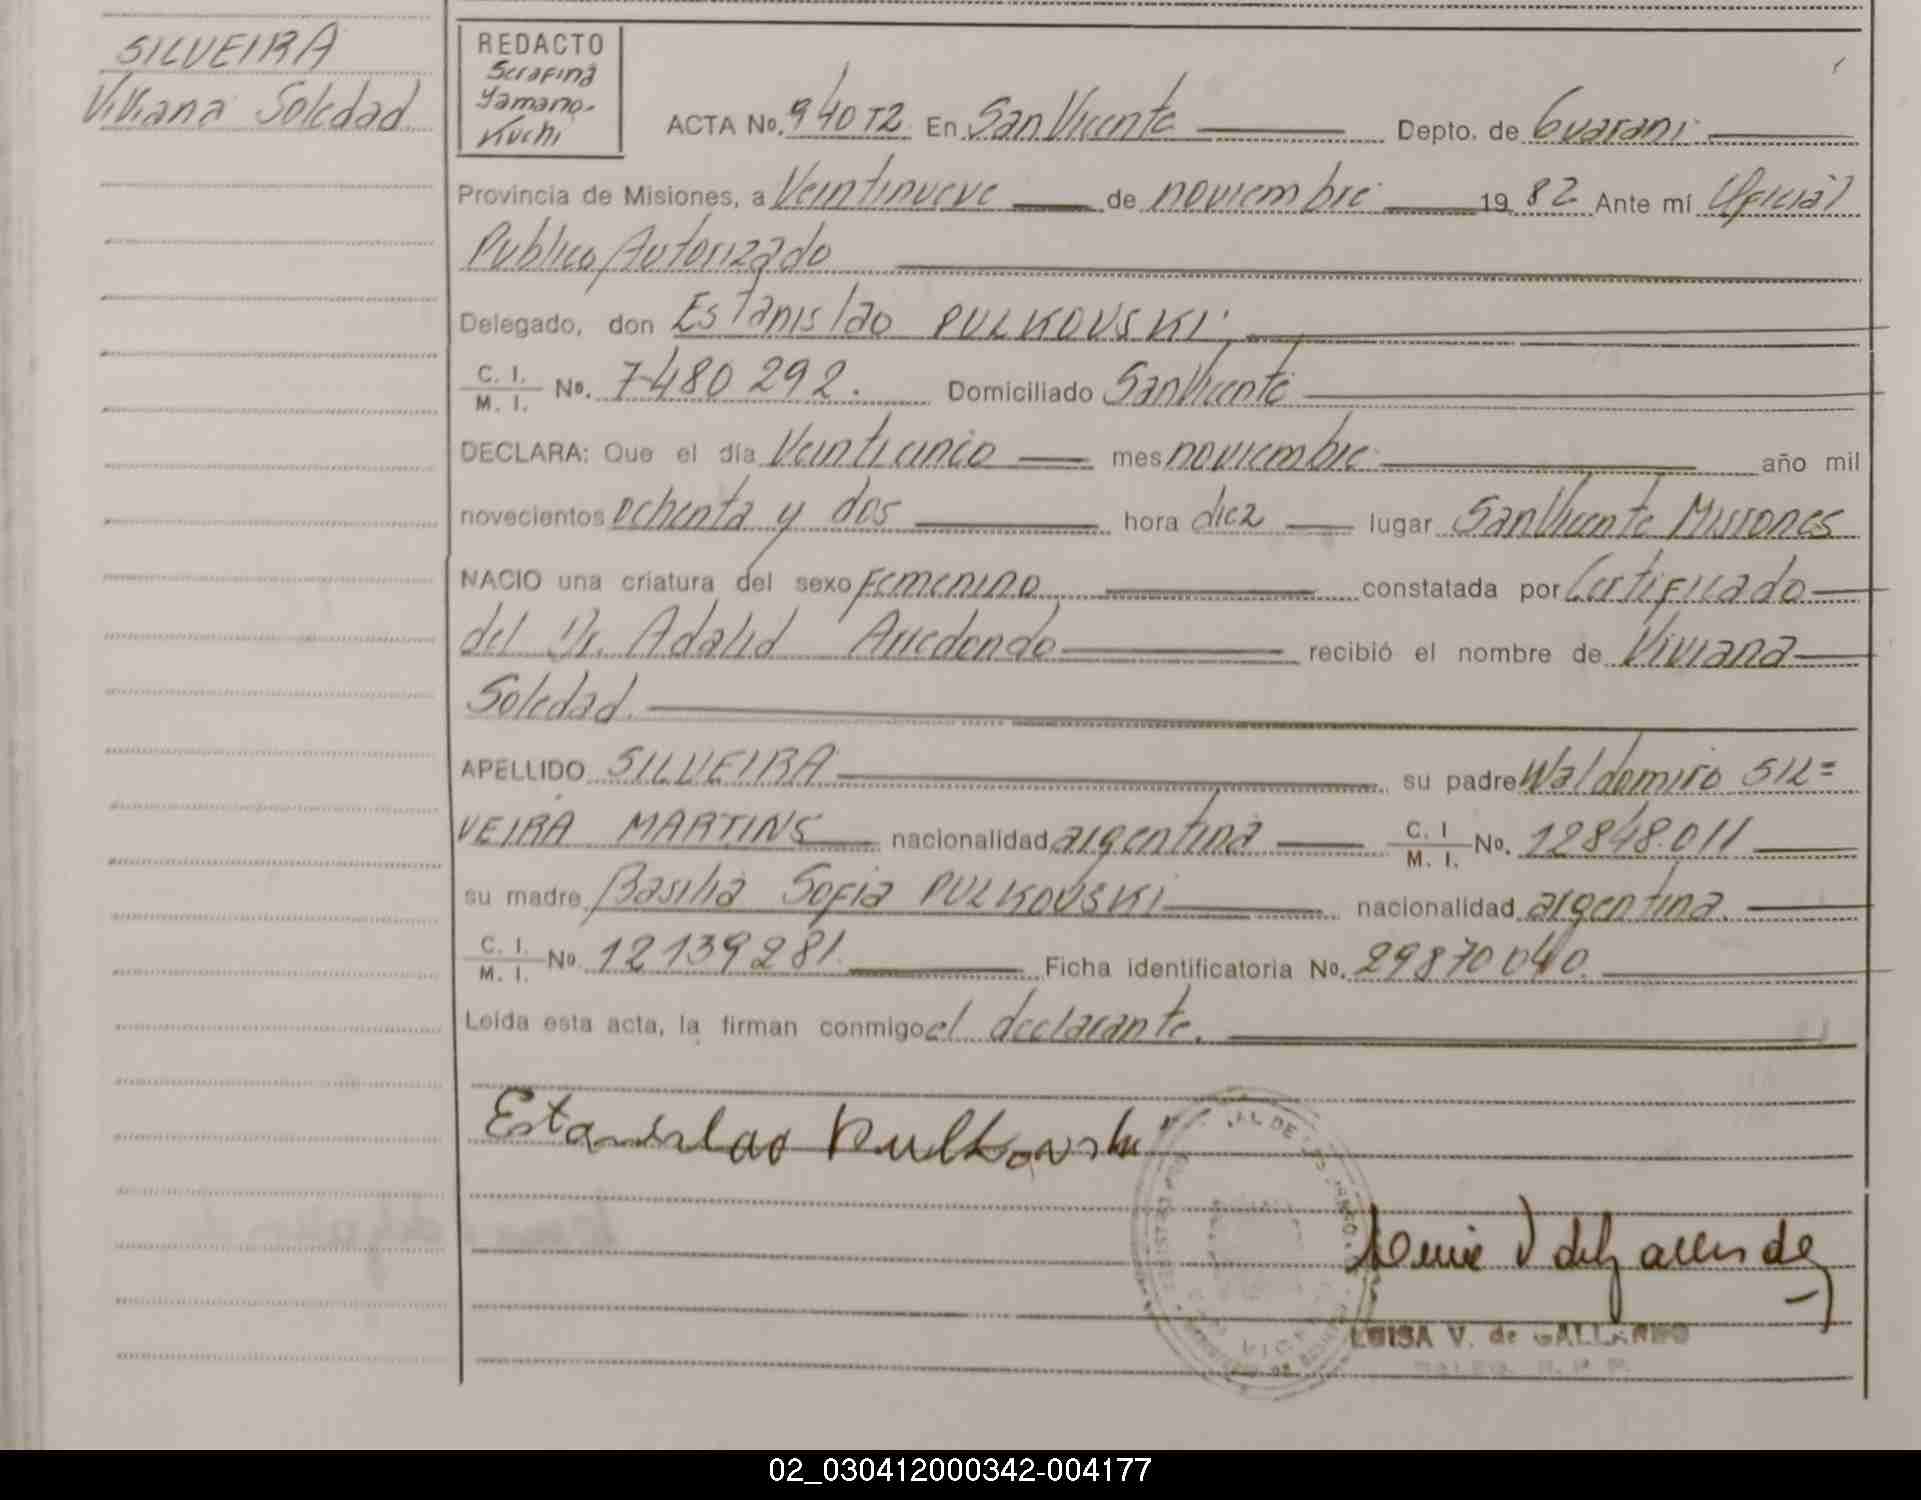 SILVEIRA
Viviana Soledad
REDACTO
Serafina
Yamano-
Kuchi
ACTA No. 940 T2 En San Vicente Depto. de Guarani
Provincia de Misiones, a Veintinueve de noviembre 19 82 Ante mí Oficial
Publico Autorizado
Delegado, don Estanislao PULKOVSKI
C. I. M. I. No. 7480 292. Domiciliado San Vicente
DECLARA: Que el día Veinticinco mes noviembre año mil
novecientos ochenta y dos hora diez lugar San Vicente Misiones
NACIO una criatura del sexo Femenino constatada por Certificado
del Dr. Adalid Arredondo recibió el nombre de Viviana
Soledad.
APELLIDO SILVEIRA su padre Waldomiro SIL=
VEIRA MARTINS nacionalidad argentina C. I M. I. No. 12848.011
su madre Basilia Sofia PULKOVSKI nacionalidad argentina.
C. I. M. I. No. 12139281. Ficha identificatoria No. 29870040
Leída esta acta, la firman conmigo el declarante.
Estanislao Pulkovski
LUISA V. de GALLARDO
02_030412000342-004177